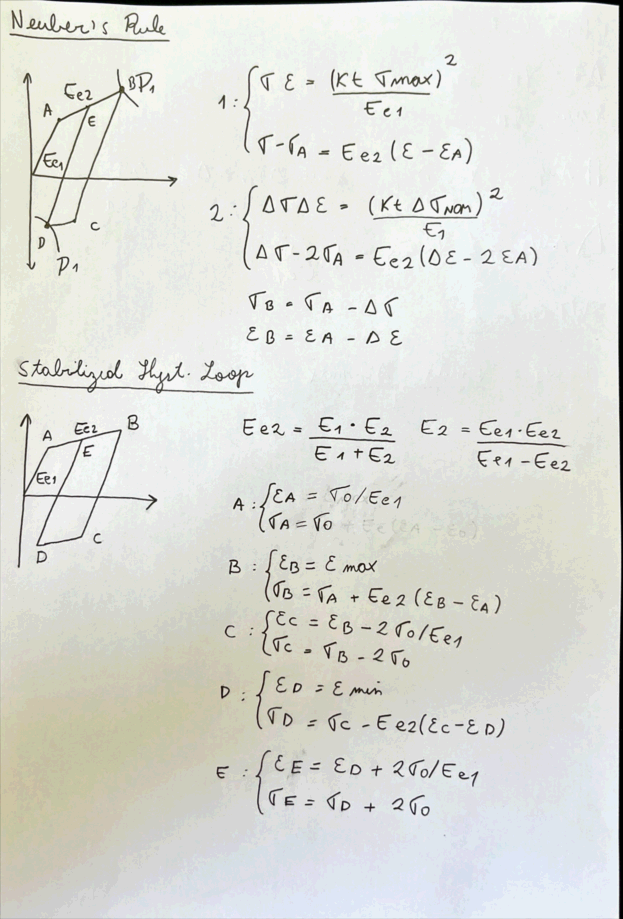 Neuber's Rule
Ee2
B
P1
A
E
Ee1
C
D
P1
1: { σ ε = (Kt σmax)² / Ee1
σ - σA = Ee2 (ε - εA)
2: { Δσ Δε = (Kt Δσnom)² / E1
Δσ - 2σA = Ee2 (Δε - 2 εA)
σB = σA - Δσ
εB = εA - Δε
Stabilized Hyst. Loop
Ee2
B
A
E
Ee1
C
D
Ee2 = E1 · E2 / E1 + E2
E2 = Ee1 · Ee2 / Ee1 - Ee2
A : { εA = σ0/Ee1
σA = σ0
B : { εB = εmax
σB = σA + Ee2 (εB - εA)
C : { εC = εB - 2σ0/Ee1
σC = σB - 2σ0
D : { εD = εmin
σD = σC - Ee2(εC - εD)
E : { εE = εD + 2σ0/Ee1
σE = σD + 2σ0